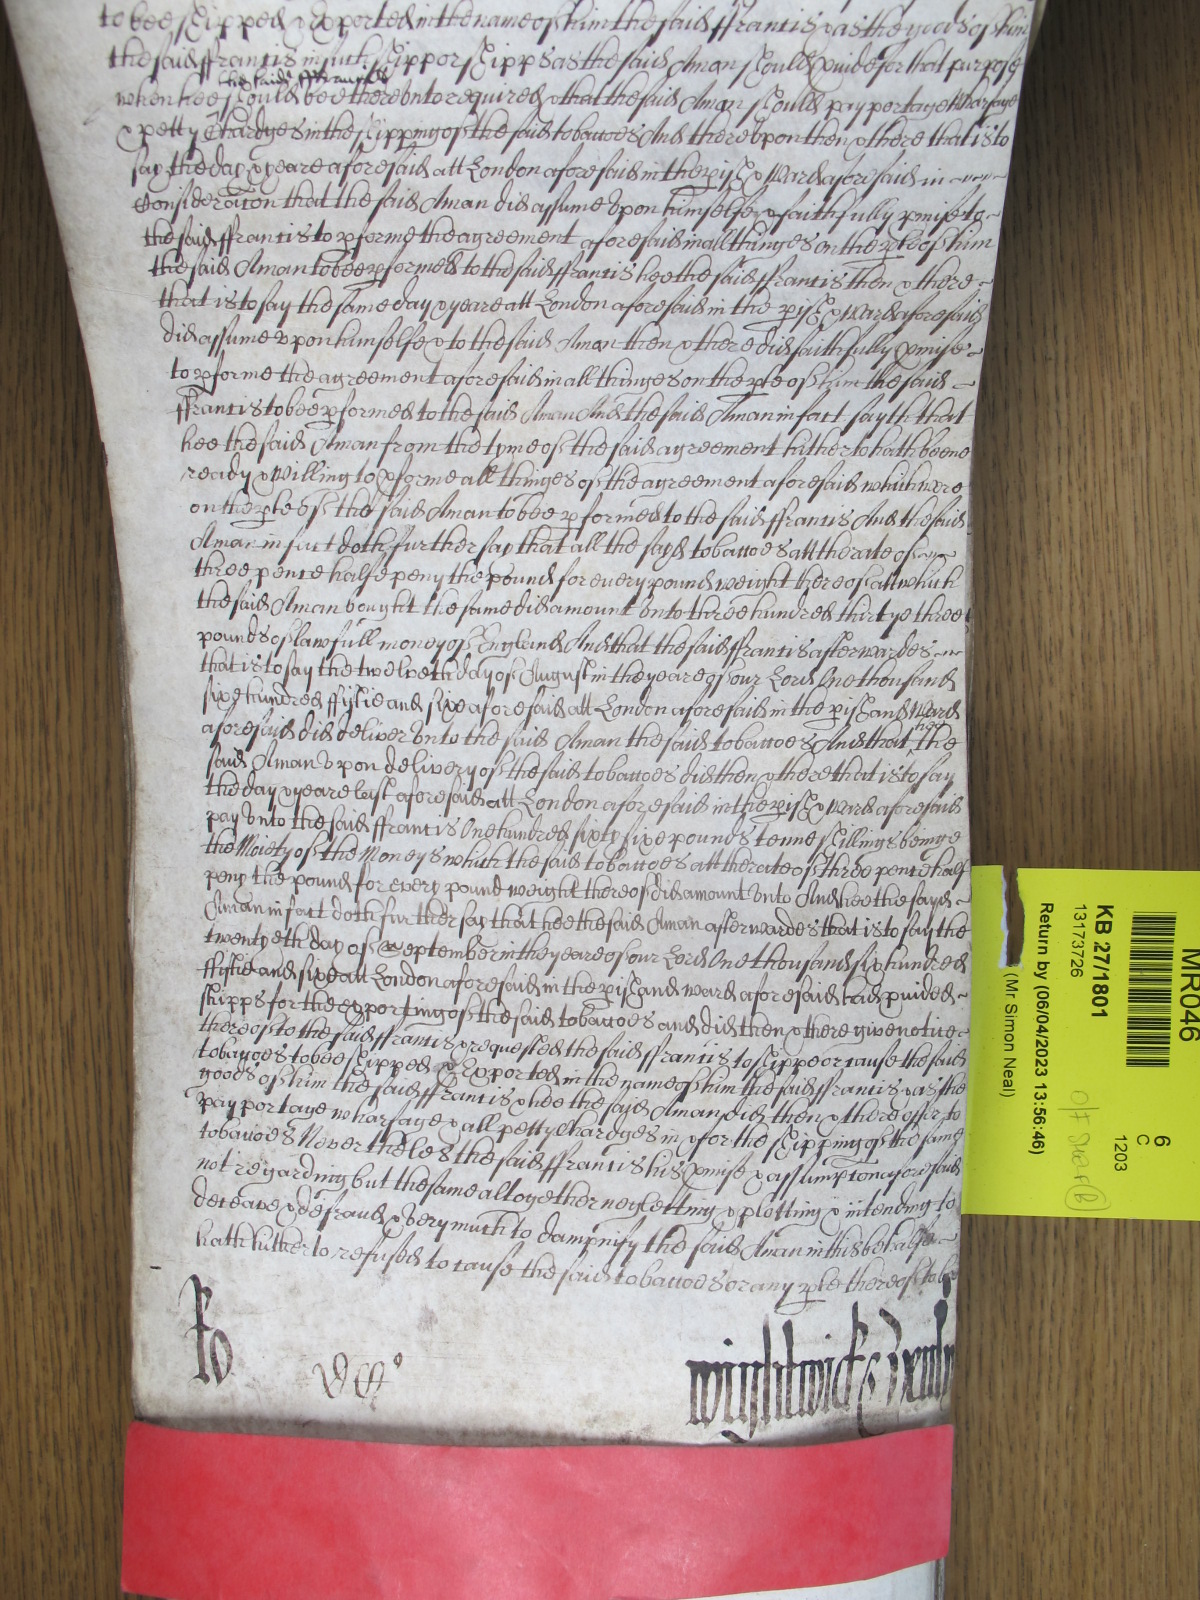 to bee shipped & exported in the name of him the said ffrancis & as the goods of him
the said ffrancis in such shipp or shipps as the said Aman should pvide for that purpose
the said ffrancis
when hee should bee thereunto required & that the said Aman should pay portage wharfage
& petty Chardges in the shipping of the said tobaccoes And thereupon then & there that is to
say the day & yeare aforesaid att London aforesaid in the pish & Ward aforesaid in
Consideracon that the said Aman did assume upon himselfe & faithfully pmise to
the said ffrancis to pforme the agreement aforesaid in all thinges on the pte of him
the said Aman to bee pformed to the said ffrancis hee the said ffrancis then & there
that is to say the same day & yeare att London aforesaid in the pish & Ward aforesaid
did assume upon himselfe & to the said Aman then & there did faithfully pmise
to pforme the agreement aforesaid in all thinges on the pte of him the said
ffrancis to bee pformed to the said Aman And the said Aman in fact sayth that
hee the said Aman from the tyme of the said agreement hitherto hath beene
ready & willing to pforme all thinges of the agreement aforesaid which were
on the pte of the said Aman to bee pformed to the said ffrancis And the said
Aman in fact doth further say that all the sayd tobaccoes att the rate of
three pence halfe peny the pound for every pound weight thereof att which
the said Aman bought the same did amount unto three hundred thirtye three
pounds of lawfull money of England And that the said ffrancis afterwardes
that is to say the twelveth day of August in the yeare of our Lord One thousand
six hundred ffyftie and six aforesaid att London aforesaid in the pish and Ward
aforesaid did deliver unto the said Aman the said tobaccoes And that hee the
said Aman upon delivery of the said tobaccoes did then & there that is to say
the day & yeare last aforesaid att London aforesaid in the pish & Ward aforesaid
pay unto the said ffrancis One hundred sixty six pounds tenne shillings beinge
the Moiety of the Moneys which the said tobaccoes att the rate of three pence half
peny the pound for every pound weight thereof did amount unto And hee the sayd
Aman in fact doth further say that hee the said Aman afterwardes that is to say the
twentyeth day of September in the yeare of our Lord One thousand six hundred
ffyftie and six att London aforesaid in the pish and ward aforesaid had pvided
shipps for the exporting of the said tobaccoes and did then & there give notice
thereof to the said ffrancis & requested the said ffrancis to shipp or cause the said
tobaccoes to bee shipped & Exported in the name of him the said ffrancis & as the
goods of him the said ffrancis & hee the said Aman did then & there offer to
pay portage wharfage & all petty Chardges in & for the shipping of the same
tobaccoes Neverthelesse the said ffrancis his pmise & assumpcon aforesaid
not regarding but the same altogether neglecting & plotting & intending to
deceave & defraud & very much to dampnify the said Aman in this behalfe
hath hitherto refused to cause the said tobaccoes or any pte thereof to bee
Ro
wightwick &
MR046
KB 27/1801
13173726
Return by (06/04/2023 13:56:46)
(Mr Simon Neal)
6
C
1203